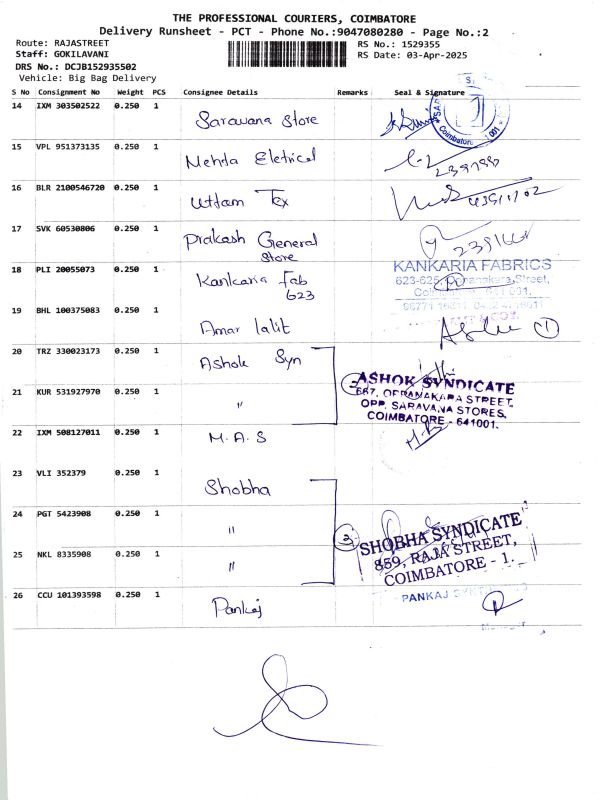 THE PROFESSIONAL COURIERS, COIMBATORE
Delivery Runsheet - PCT - Phone No.:9047080280 - Page No.:2
Route: RAJASTREET
Staff: GOKILAVANI
DRS No.: DCJB152935502
Vehicle: Big Bag Delivery
RS No.: 1529355
RS Date: 03-Apr-2025
S No Consignment No Weight PCS Consignee Details Remarks Seal & Signature
14 IXM 303502522 0.250 1 Saravana Store
Coimbatore
15 VPL 951373135 0.250 1 Mehta Eletrical
16 BLR 2100546720 0.250 1 Uttam Tex
17 SVK 60530806 0.250 1 Prakash General
Store
KANKARIA FABRICS
18 PLI 20055073 0.250 1 Kankaria Fab
623
19 BHL 100375083 0.250 1 Amar lalit 1
20 TRZ 330023173 0.250 1 Ashok Syn
2 ASHOK SYNDICATE
667, OPPANAKARA STREET,
OPP. SARAVANA STORES,
COIMBATORE - 641001.
21 KUR 531927970 0.250 1 "
22 IXM 508127011 0.250 1 M.A.S
23 VLI 352379 0.250 1 Shobha
24 PGT 5423908 0.250 1 "
3 SHOBHA SYNDICATE
859, RAJA STREET,
COIMBATORE - 1.
25 NKL 8335908 0.250 1 "
26 CCU 101393598 0.250 1 Pankaj
PANKAJ